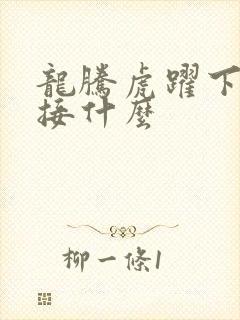 龍騰虎躍下
接什麼
柳一條1